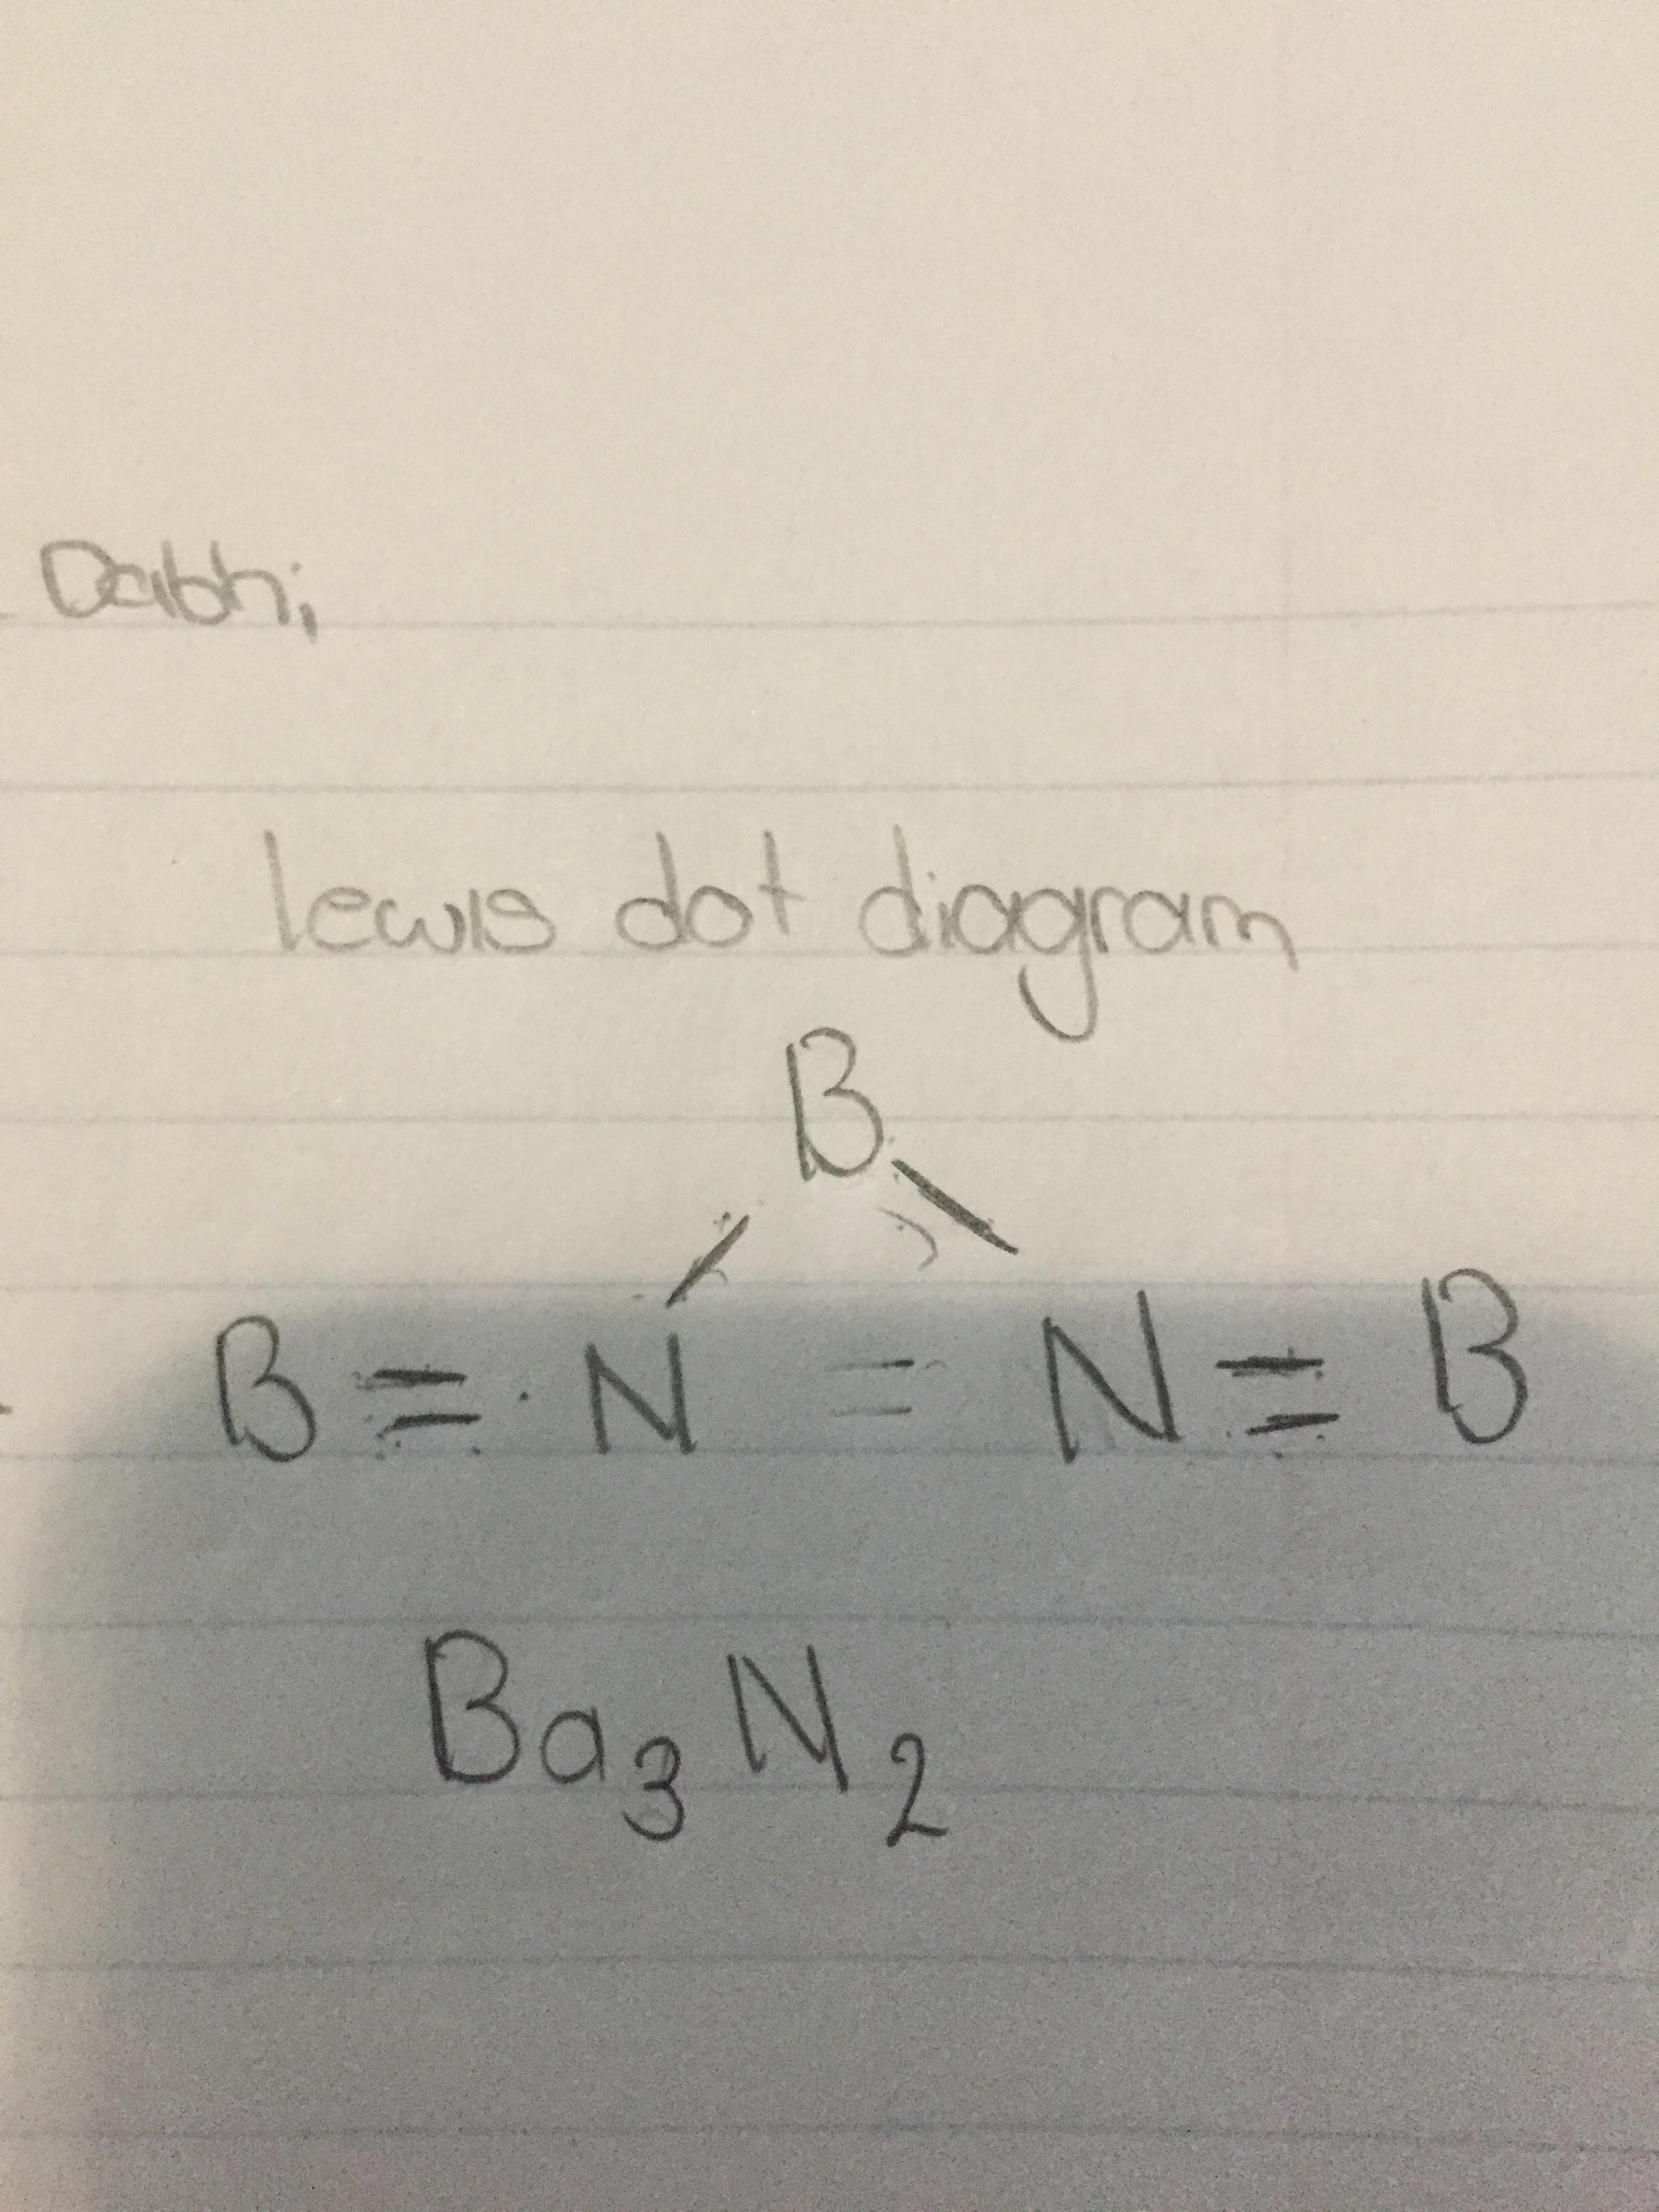 Dabhi
lewis dot diagram
B
B = N = N = B
Ba₃N₂